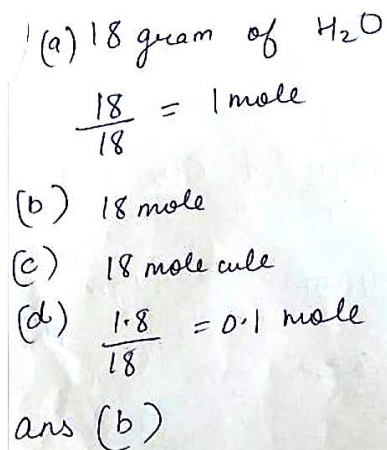 (a) 18 gram of H₂O
18/18 = 1 mole
(b) 18 mole
(c) 18 molecule
(d) 1.8/18 = 0.1 mole
ans (b)